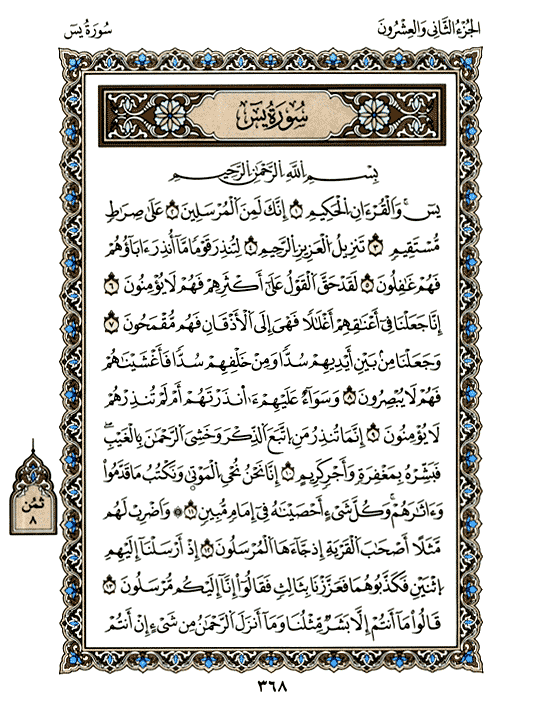 الجُزْءُ الثَّانِي وَالْعِشْرُونَ
سُورَةُ يسٓ
سُورَةُ يسٓ
بِسْمِ اللَّهِ الرَّحْمَٰنِ الرَّحِيمِ
يسٓ وَالْقُرْءَانِ الْحَكِيمِ ١ إِنَّكَ لَمِنَ الْمُرْسَلِينَ ٢ عَلَىٰ صِرَاطٍ
مُّسْتَقِيمٍ ٣ تَنزِيلُ الْعَزِيزِ الرَّحِيمِ ٤ لِتُنذِرَ قَوْمًا مَّا أُنذِرَ ءَابَاؤُهُمْ
فَهُمْ غَٰفِلُونَ ٥ لَقَدْ حَقَّ الْقَوْلُ عَلَىٰ أَكْثَرِهِمْ فَهُمْ لَا يُؤْمِنُونَ ٦
إِنَّا جَعَلْنَا فِي أَعْنَٰقِهِمْ أَغْلَٰلًا فَهْيَ إِلَى الْأَذْقَانِ فَهُم مُّقْمَحُونَ ٧
وَجَعَلْنَا مِنۢ بَيْنِ أَيْدِيهِمْ سُدًّا وَمِنْ خَلْفِهِمْ سُدًّا فَأَغْشَيْنَٰهُمْ
فَهُمْ لَا يُبْصِرُونَ ٨ وَسَوَآءٌ عَلَيْهِمْ ءَا۬نذَرْتَهُمْ أَمْ لَمْ تُنذِرْهُمْ
لَا يُؤْمِنُونَ ٩ إِنَّمَا تُنذِرُ مَنِ اتَّبَعَ الذِّكْرَ وَخَشِيَ الرَّحْمَٰنَ بِالْغَيْبِ
فَبَشِّرْهُ بِمَغْفِرَةٍ وَأَجْرٍ كَرِيمٍ ١٠ إِنَّا نَحْنُ نُحْيِ الْمَوْتَىٰ وَنَكْتُبُ مَا قَدَّمُوا
وَءَاثَٰرَهُمْ وَكُلَّ شَيْءٍ أَحْصَيْنَٰهُ فِي إِمَامٍ مُّبِينٍ ١١ وَاضْرِبْ لَهُم
مَّثَلًا أَصْحَٰبَ الْقَرْيَةِ إِذْ جَآءَهَا الْمُرْسَلُونَ ١٢ إِذْ أَرْسَلْنَا إِلَيْهِمُ
اثْنَيْنِ فَكَذَّبُوهُمَا فَعَزَّزْنَا بِثَالِثٍ فَقَالُوا إِنَّا إِلَيْكُم مُّرْسَلُونَ ١٣
قَالُوا مَا أَنتُمْ إِلَّا بَشَرٌ مِّثْلُنَا وَمَا أَنزَلَ الرَّحْمَٰنُ مِن شَيْءٍ إِنْ أَنتُمْ
ثُمُن
٨
٣٦٨